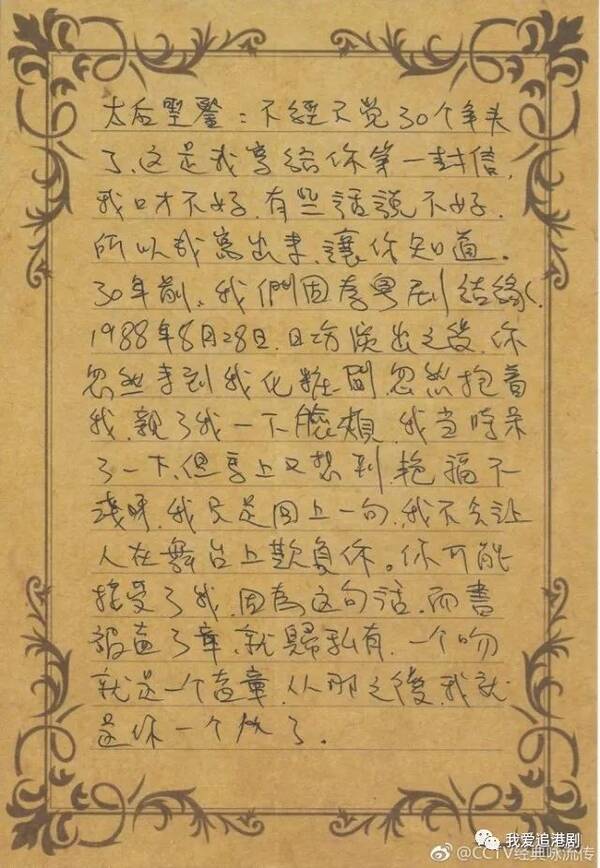 太后聖鑒：不經不覚30个年头
了、这是我寫給你第一封信,
我口才不好、有些話說不好、
所以我寫出来、讓你知道。
30年前、我們因為粤剧結緣、
1988年8月28日、日场演出之後、你
忽然来到我化粧間、忽然抱着
我、親了我一下臉頰、我当時呆
了一下、但馬上又想到、艳福不
淺呀、我只是回上一句、我不会让
人在舞台上欺負你。你可能
接受了我、因為这句話、而書
被盖了章、就歸私有、一个吻
就是一个盖章、从那之後、我就
是你一个了.
我爱追港剧
@CCTV经典咏流传